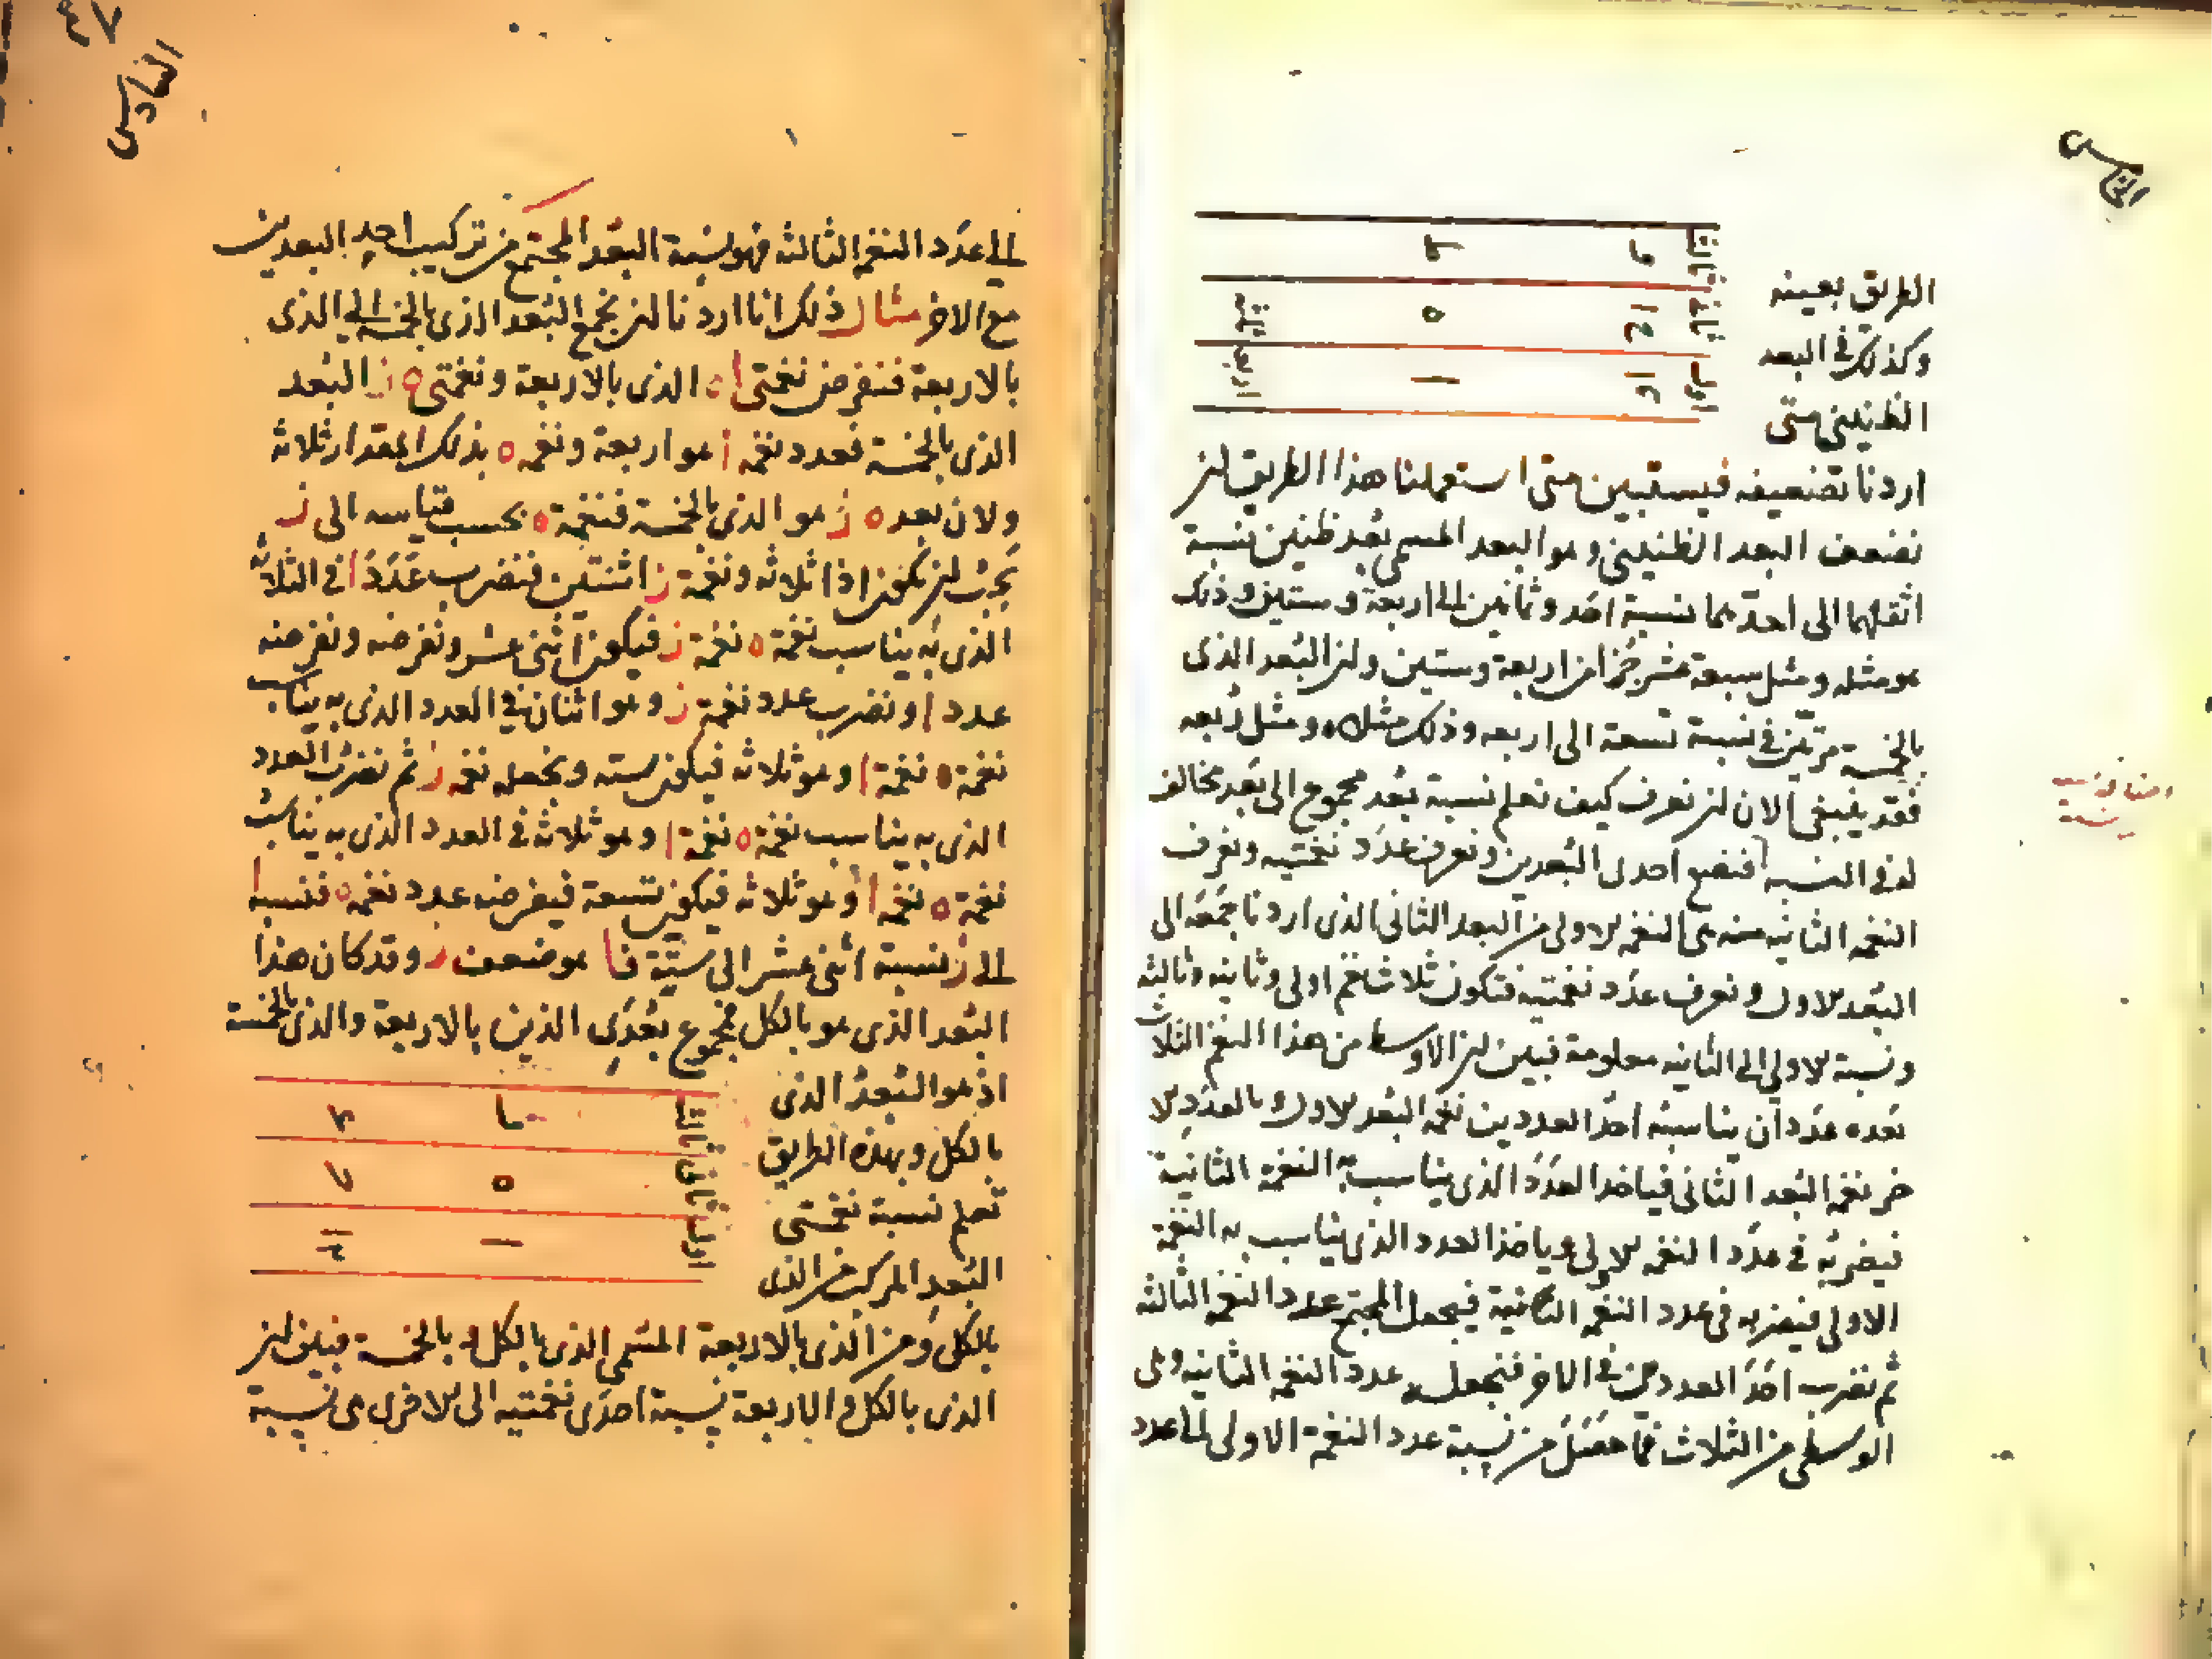 الطريق بعينه
وكذلك في البعد
الطنيني متى
اردنا تضعيفه فيستبين متى استعملنا هذا الطريق ان
نضعف البعد الطنيني وهو البعد المسمى بعد طنين نسبة
اثقلهما الى احدهما نسبة احد وثمانين الى اربعة وستين وذلك
هو مثله ومثل سبعة عشر جزءا من اربعة وستين وان البعد الذي
بالخمسة مرتين في نسبة تسعة الى اربعه وذلك مثلاه ومثل ربعه
فقد ينبغي الان ان نعرف كيف نعلم نسبة بعد مجموع الى بعد مخالف
له في النسبه فنضع احدى البعدين ونعرف عدد نغمتيه ونعرف
النغمه الثانيه منه هي النغمه الاولى من البعد الثاني الذي اردنا جمعه الى
البعد الاول ونعرف عدد نغمتيه فتكون ثلاث نغم اولى وثانيه وثالثه
ونسبة الاولى الى الثانيه معلومة فبين ان الاوسط من هذا النغم الثلاث
بعده عدد ان يناسبه احد العددين نغمه البعد الاول بالعدد الا
خر نغمه البعد الثاني فياخذ العدد الذي يناسب به النغمة الثانية
فيضربه في عدد النغمه الاولى وياخذ العدد الذي يناسب به النغمة
الاولى فيضربه في عدد النغمه الثانية فيجعل المجتمع عدد النغمه الثالثه
ثم نضرب احد العددين في الاخر فنجعله عدد النغمه الثانيه وهى
الوسطى من الثلاث فما حصل من نسبة عدد النغمة الاولى الى عدد
السادس
٤٧
الى عدد النغمه الثالثه فهو نسبة البعد المجتمع من تركيب احد البعدين
مع الاخر مثال ذلك انا اردنا ان نجمع البعد الذي بالخمسة الى الذي
بالاربعة فنفرض نغمتى ا ه الذي بالاربعة ونغمتى ه ز البعد
الذي بالخمسة فعدد نغمه ا هو اربعة ونغمه ه بذلك المقدار ثلاثه
ولان بعد ه ز هو الذي بالخمسة فنغمة ه بحسب قياسه الى ز
يجب ان تكون اذا ثلاثه ونغمة ز اثنتين فنضرب عدد ا في الثلاثه
الذي به يناسب نغمة ه نغمة ز فيكون اثنى عشر ونفرضه ونفرضه
عدد ا ونضرب عدد نغمة ز وهو اثنان في العدد الذي به يناسب
نغمة ه نغمة ا وهو ثلاثه فيكون سته ونجعله نغمه ز ثم نضرب العدد
الذي به يناسب نغمة ه نغمة ا وهو ثلاثه في العدد الذي به يناسب
نغمة ه نغمه ا وهو ثلاثه فيكون تسعة فيفرضه عدد نغمه ه فنسبه ا
الى ز نسبة اثنى عشر الى ستة فا هو ضعف ز وقد كان هذا
البعد الذي هو بالكل مجموع بعدى الذين بالاربعة والذي بالخمسة
اذ هو البعد الذي
بالكل وبهذه الطريق
تعلم نسبة نغمتى
البعد المركب من الذي
بالكل ومن الذي بالاربعة المسمى الذي بالكل وبالخمسة فبين ان
الذي بالكل والاربعة نسبة احدى نغمتيه الى الاخرى هى نسبة